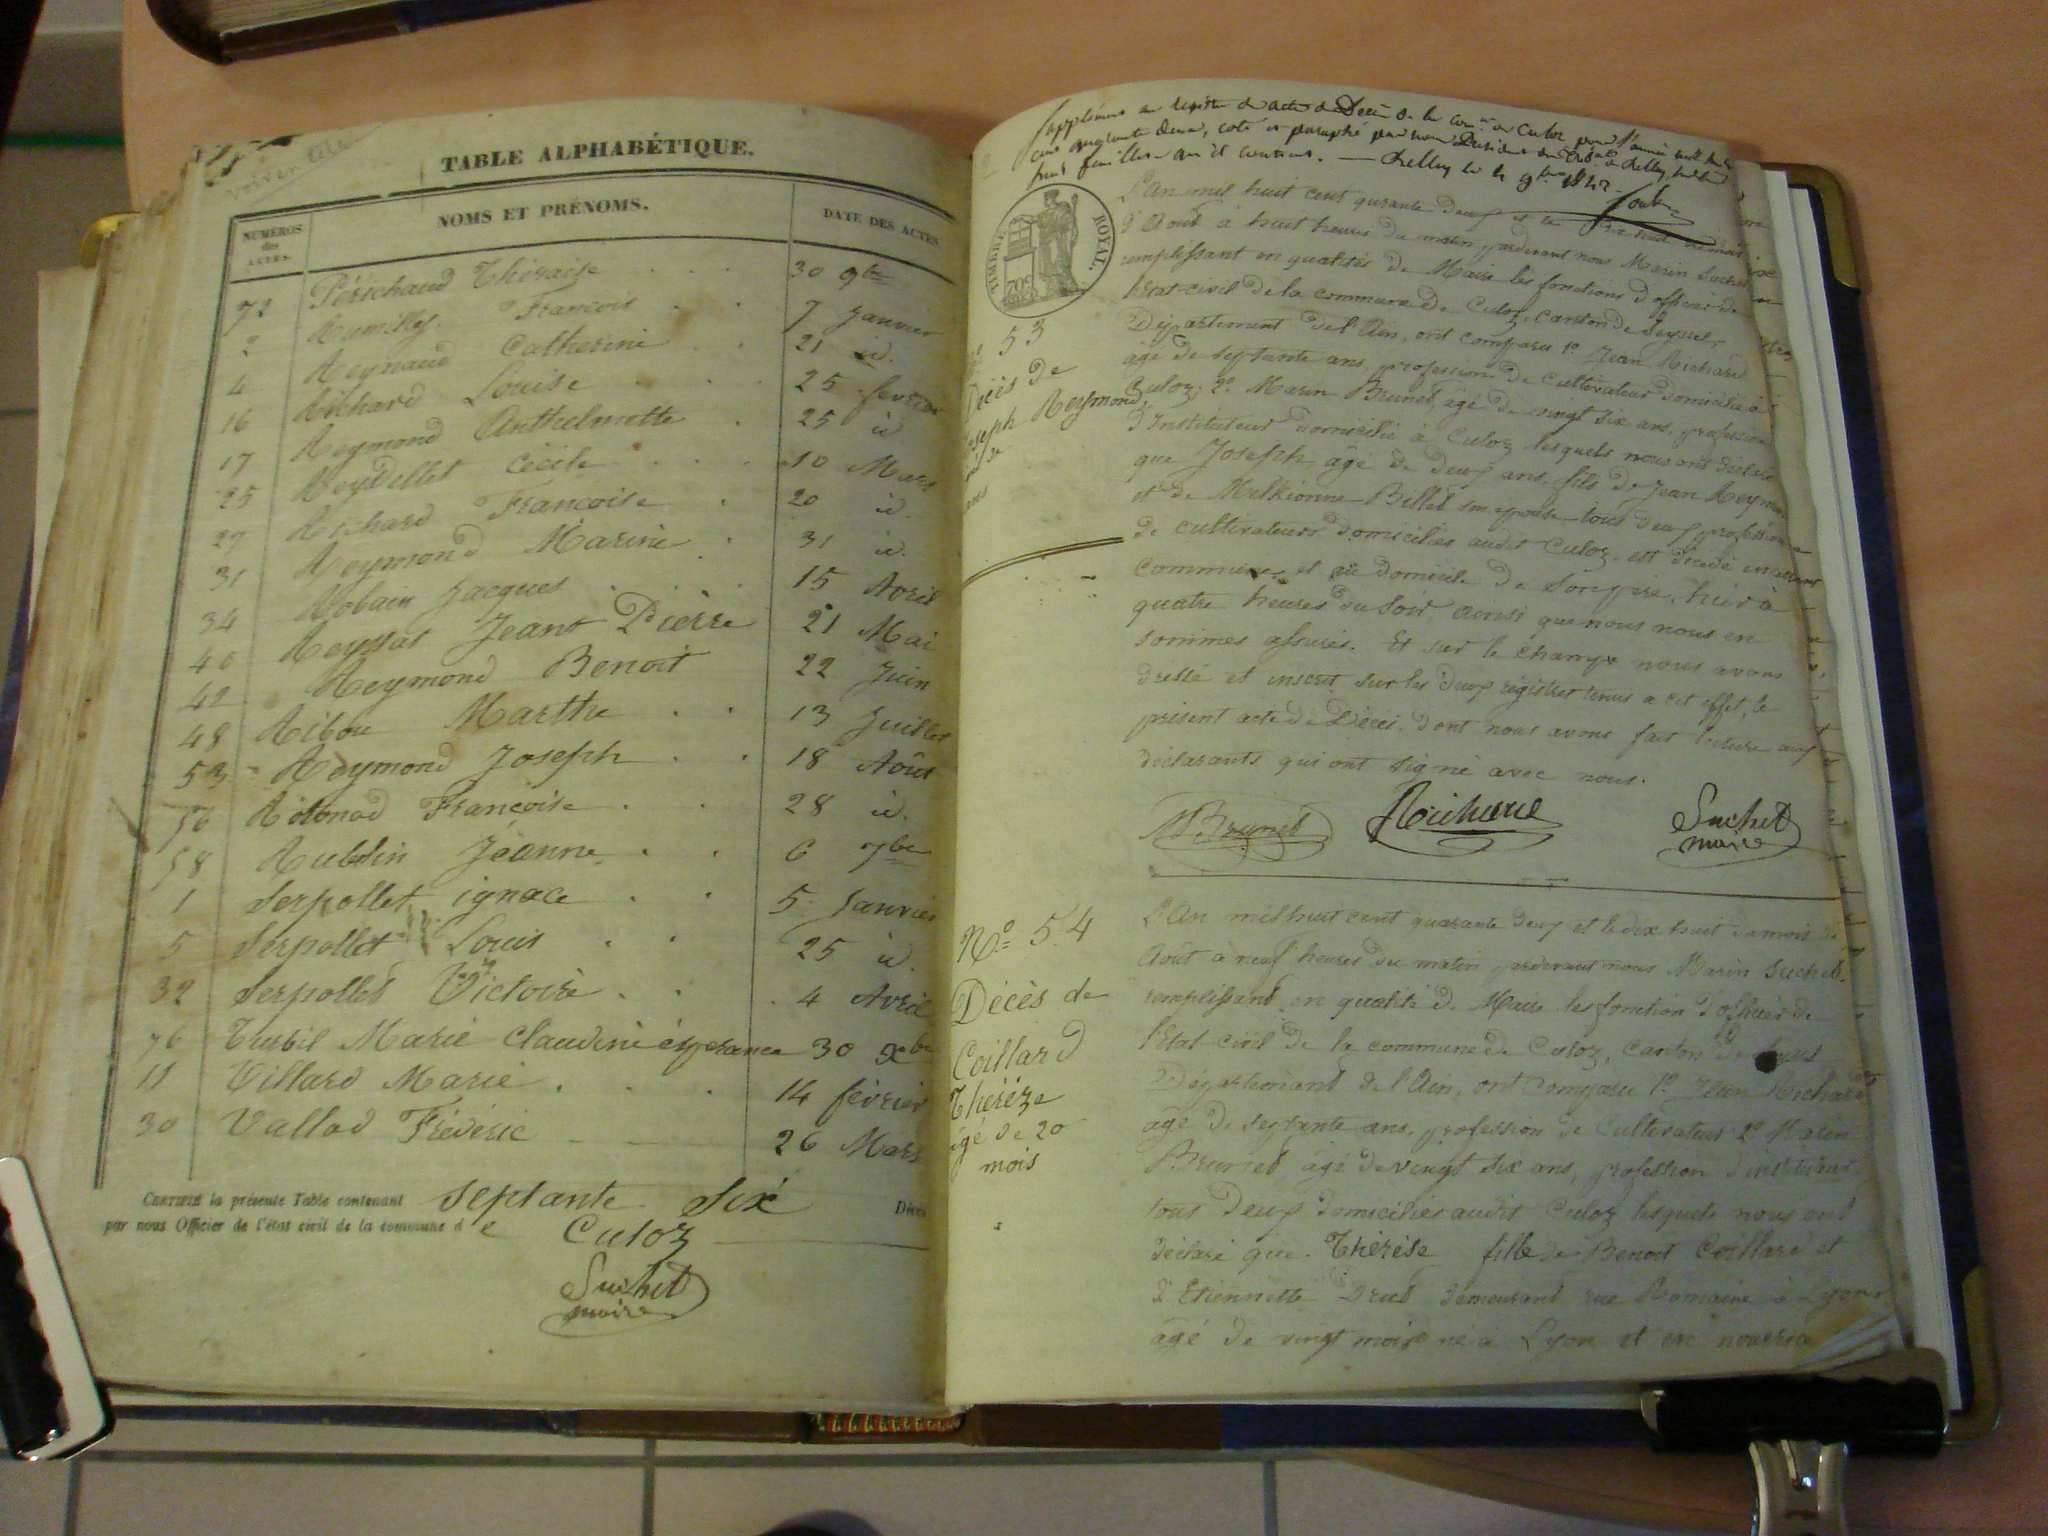 TABLE ALPHABÉTIQUE.
NUMÉROS des ACTES. NOMS ET PRÉNOMS. DATE DES ACTES
72 Périchaud Théraise 30 9bre
2 Rumilly François 7 Janvier
4 Reynaud Catherine 21 id.
16 Richard Louise 25 février
17 Reymond Anthelmette 25 id
25 Reydellet Cécile 10 Mars
29 Richard Francoise 20 id.
31 Reymond Marine 31 id.
34 Robain Jacques 15 Avril
40 Jeant Pierre 21 Mai
42 Reymond Benoit 22 Juin
48 Ribou Marthe 13 Juillet
53 Reymond Joseph 18 Août
56 Françoise 28 id.
58 Rubin Jeanne 6 7bre
1 Serpollet ignace 5 Janvier
5 Serpollet Louis 25 id.
32 Serpollet Victoire 4 Avril
76 Turbil Marie Claudine éspérance 30 Xbre
11 Villard Marie 14 février
30 Vallod Fréderic 26 Mars
CERTIFIÉ la présente Table contenant septante six Décès
par nous Officier de l'état civil de la commune de Culoz
Suchet
maire
Supplément au registre de actes de Décès de la com.ne de Culoz pour l'année mil huit
cent quarante deux, coté et paraphé par nous Président du Trib.al de Belley, sur les
huit feuilles qu'il contient. — Belley le 4 9bre 1842
TIMBRE ROYAL.
70c
53
Décès de
Joseph Reymond
L'An mil huit cent qurante deux et le dix huit du mois
d'Aout à huit heures du matin pardevant nous Marin Suchet
remplissant en qualités de Maire les fonctions d'officier de
l'Etat-civil de la commune de Culoz, canton de Seyssel,
Département de l'Ain, ont comparu 1º Jean Richard
âgé de septante ans, profession de cultivateur domicilié à
Culoz; 2º Marin Brunet, âgé de vingt six ans, profession
d'Instituteur domicilié à Culoz, lesquels nous ont déclaré
que Joseph, âgé de deux ans, fils de Jean Reymond
et de Melkionne Billet son épouse tous deux profession
de cultivateurs domiciliés audit Culoz est décédé en cette
commune, et au domicile de son père, hier à
quatre heures du soir ainsi que nous nous en
sommes assurés. Et sur le champs nous avons
dressé et inscrit sur les deux régistres tenus a cet effet, le
présent acte de Décès. dont nous avons fait lecture aux
déclarants qui ont signé avec nous.
M Brunet Richard Suchet
maire
No. 54
Décès de
Coillard
Thérèze
âgé de 20
mois
L'An mil huit cent quarante deux et le dix huit du mois de
Août à neuf heures du matin, pardevant nous Marin Suchet
remplissant en qualité de Maire les fonction d'officier de
l'Etat civil de la commune de Culoz, canton de
Département de l'Ain, ont comparu 1º Jean Richard
âgé de septante ans, profession de Cultivateur 2º Marin
Brunet, âgé de vingt six ans, profession d'instituteur,
tous deux domiciliés audit Culoz lesquels nous ont
déclaré que Thérèse fille de Benoit Coillard et
d'Etiennette Druet demeurant rue Romaine à Lyon
âgé de vingt mois né à Lyon et en nourrice